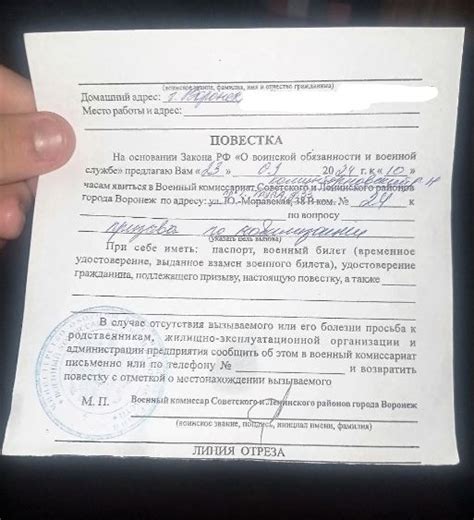 (воинское звание, фамилия, имя и отчество гражданина)
Домашний адрес: г. Воронеж
Место работы и адрес:
ПОВЕСТКА
На основании Закона РФ «О воинской обязанности и военной
службе» предлагаю Вам «23» 01 2024 г. к «10»
часам явиться в Военный комиссариат Советского и Ленинского районов
города Воронеж по адресу: ул. Ю.-Моравская, 38 В ком. № 24 к
по вопросу
призыва по мобилизации
(указать цель вызова)
При себе иметь: паспорт, военный билет (временное
удостоверение, выданное взамен военного билета), удостоверение
гражданина, подлежащего призыву, настоящую повестку, а также
В случае отсутствия вызываемого или его болезни просьба к
родственникам, жилищно-эксплуатационной организации и
администрации предприятия сообщить об этом в военный комиссариат
письменно или по телефону № и возвратить
повестку с отметкой о местонахождении вызываемого
М. П. Военный комиссар Советского и Ленинского районов города Воронеж
(воинское звание, подпись, инициал имени, фамилия)
ЛИНИЯ ОТРЕЗА